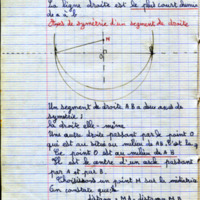 La ligne droite est le plus court chemin
de a à b
Axes de symétrie d'un segment de droite
M
O
Un segment de droite AB a deux axes de
symétrie ;
la droite elle-même
Une autre droite passant par le point O
qui est au milieu de AB
Le point O est au milieu de AB
Il est le centre d'un arc passant
par A et par B.
Choisissons un point M sur la médiatrice
On constate que
distance MA = distance MB